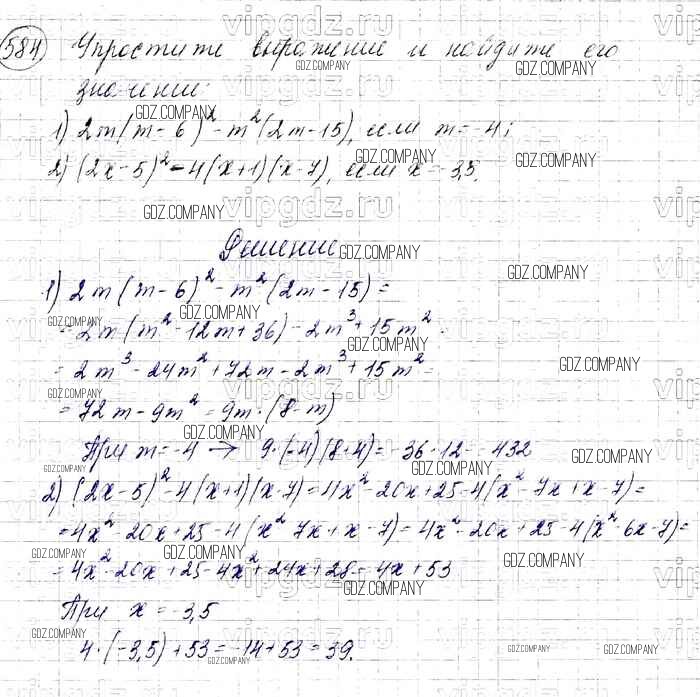 584 Упростите выражение и найдите его
значение:
1) 2m(m-6)² - m²(2m-15), если m=-4;
2) (2x-5)² - 4(x+1)(x-7), если x=-3,5.
Решение
1) 2m(m-6)² - m²(2m-15) =
= 2m(m²-12m+36) - 2m³+15m² =
= 2m³-24m²+72m-2m³+15m² =
= 72m-9m² = 9m·(8-m)
При m=-4 → 9·(-4)(8+4) = -36·12 = -432
2) (2x-5)²-4(x+1)(x-7) = 4x²-20x+25-4(x²-7x+x-7) =
= 4x²-20x+25-4(x²-7x+x-7) = 4x²-20x+25-4(x²-6x-7) =
= 4x²-20x+25-4x²+24x+28 = 4x+53
При x=-3,5
4·(-3,5)+53 = -14+53 = 39.